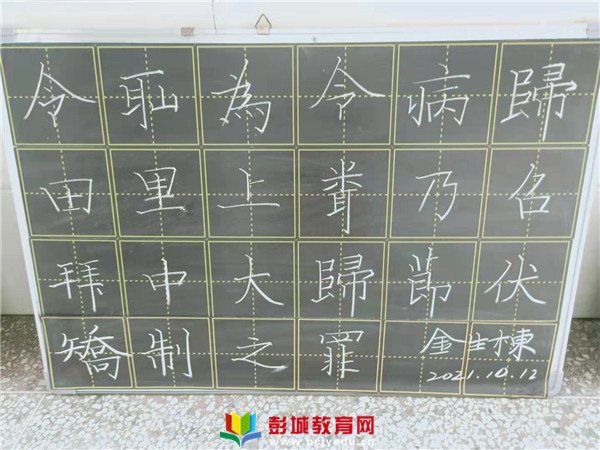 令耻為令病歸
田里上乃召
拜中大歸節伏
矯制之罪 金主棟
2021.10.12
彭城教育网
www.pcjyedu.cn